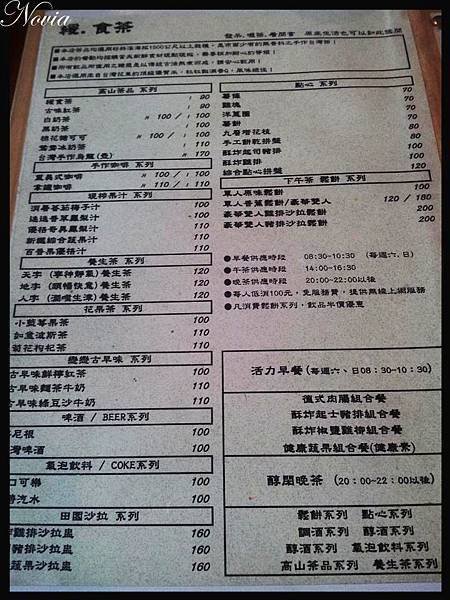 Novia
糧.食茶
高山茶品 系列
糧食茶 : 90
古味紅茶 : 90
白奶茶 H 100 / : 100
黑奶茶 : 100
桂花可可 H 100 / : 100
鴛鴦冰奶茶 : 110
台灣手作烏龍(壺) H 170
手作咖啡 系列
夏典式咖啡 H 100 / : 100
拿鐵咖啡 H 110 / : 110
現榨果汁 系列
消暑蕃茄梅子汁 100
迷迭香草鳳梨汁 100
優格奇異鳳梨汁 110
新鐵綜合蔬果汁 110
百香果優格汁 110
養生茶 系列
天字 (寧神解氣) 養生茶 120
地字 (順暢快意) 養生茶 120
人字 (潤喉生津) 養生茶 120
花果茶 系列
小藍莓果茶 100
如意波斯茶 100
菊花枸杞茶 110
戀戀古早味 系列
古早味鮮檸紅茶 100
古早味麵茶牛奶 110
古早味綠豆沙牛奶 110
啤酒 / BEER系列
尼根 100
灣啤酒 100
氣泡飲料 / COKE系列
口可樂 100
汽水 100
田園沙拉 系列
雞排沙拉盅 160
豬排沙拉盅 160
蔬果沙拉盅 160
點心 系列
薯條 70
雞塊 70
洋蔥圈 70
薯餅 70
九層塔花枝 80
手工餅乾拼盤 80
酥炸起司豬排 100
酥炸雞排 100
綜合點心拼盤 120
下午茶 鬆餅 系列
單人原味鬆餅 100
單人香蕉鬆餅/豪華雙人 120 / 180
豪華雙人雞排沙拉鬆餅 200
豪華雙人豬排沙拉鬆餅 200
●早餐供應時段 08:30-10:30 (每週六.日)
●午茶供應時段 14:00-16:30
●晚茶供應時段 20:00-22:00以後
●每人低消100元,免服務費,提供無線上網服務
●凡消費鬆餅系列,飲品半價優惠
活力早餐(每週六、日08:30-10:30)
德式肉腸組合餐
酥炸起士豬排組合餐
酥炸椒鹽雞柳組合餐
健康蔬果組合餐(健康素)
醇閒晚茶 (20:00-22:00以後)
鬆餅系列 點心系列
調酒系列 醇酒系列
醇酒系列 氣泡飲料系列
高山茶品系列 養生茶系列